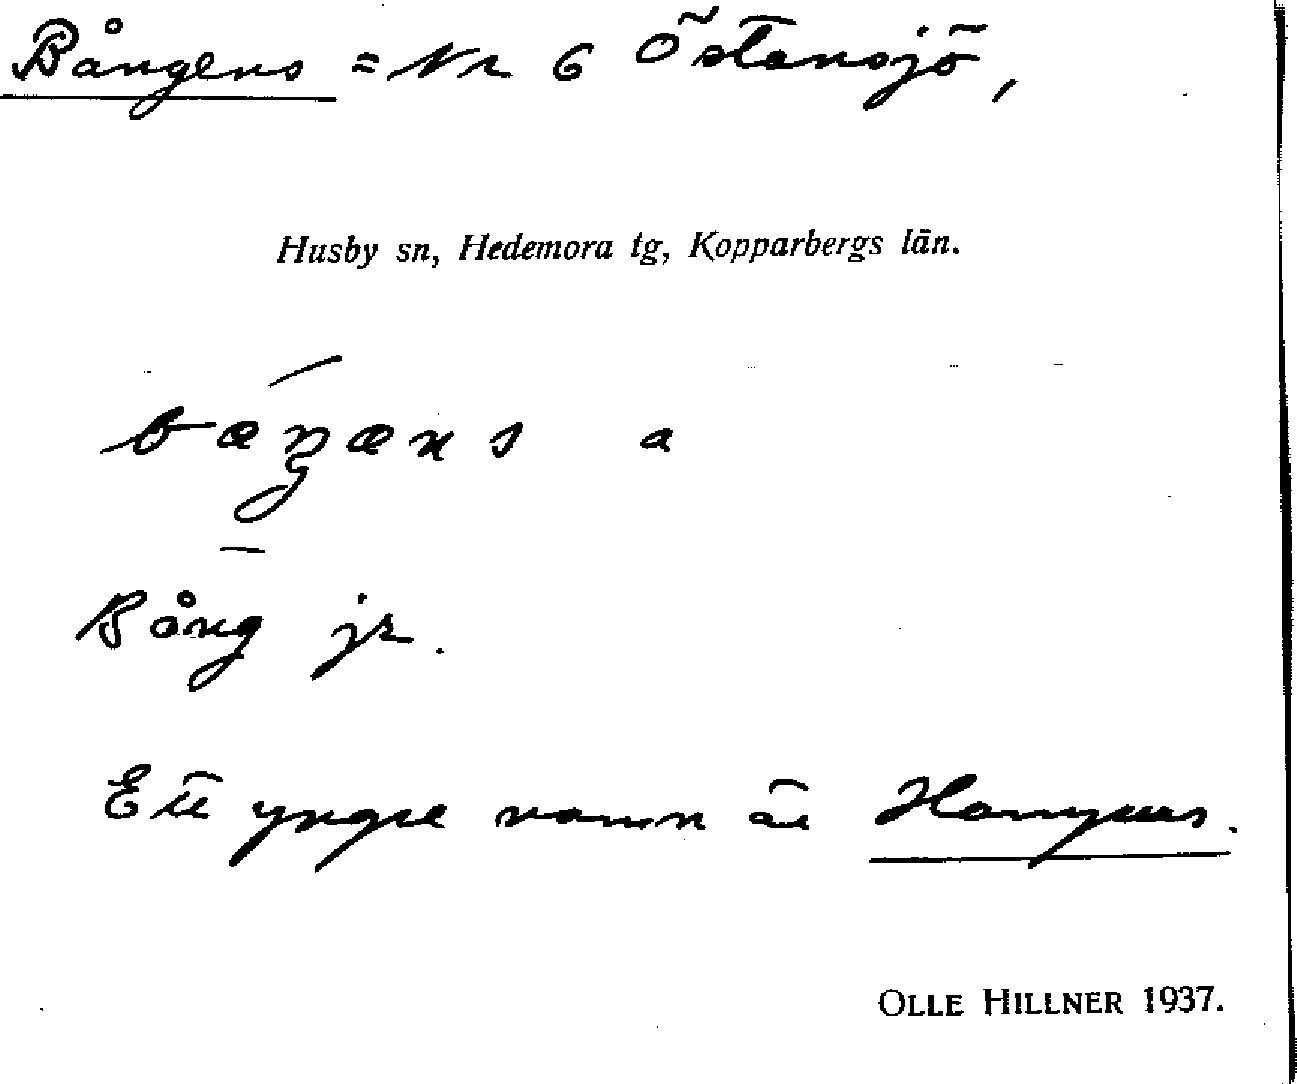 Bångens = Nr 6 Östansjö,
Husby sn, Hedemora tg, Kopparbergs län.
bæŋæns a
Bång jr.
Ett yngre namn är
OLLE HILLNER 1937.